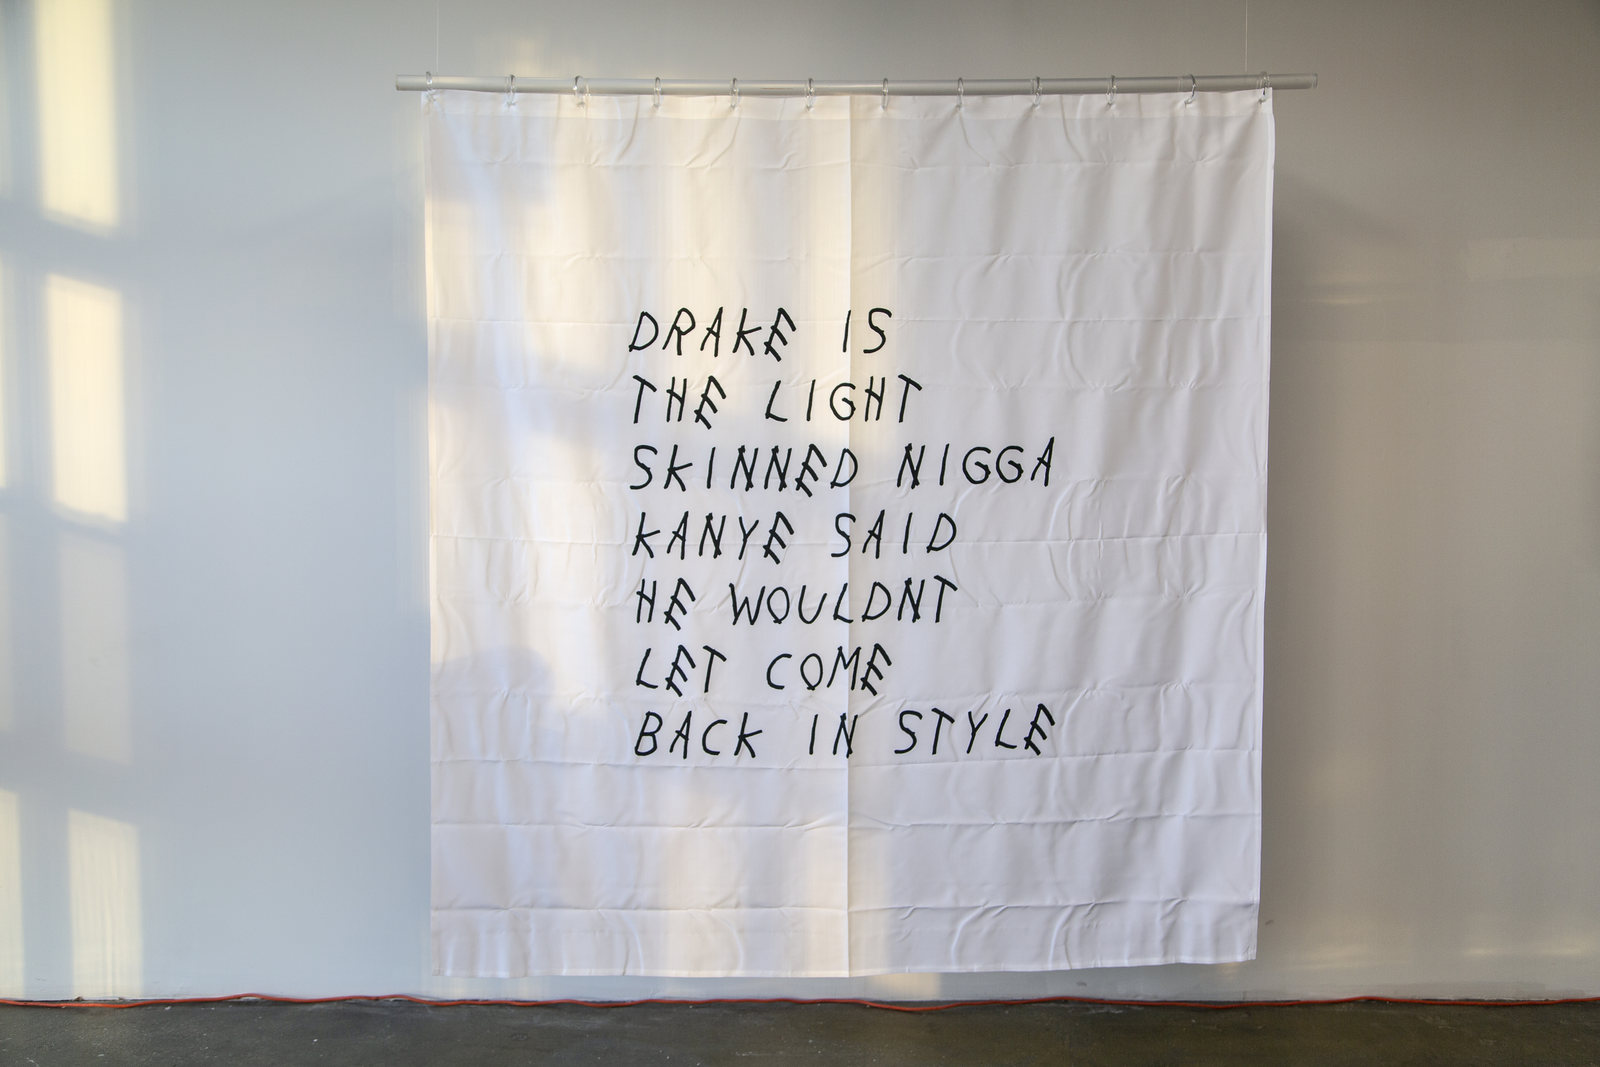 DRAKE IS
THE LIGHT
SKINNED NIGGA
KANYE SAID
HE WOULDNT
LET COME
BACK IN STYLE